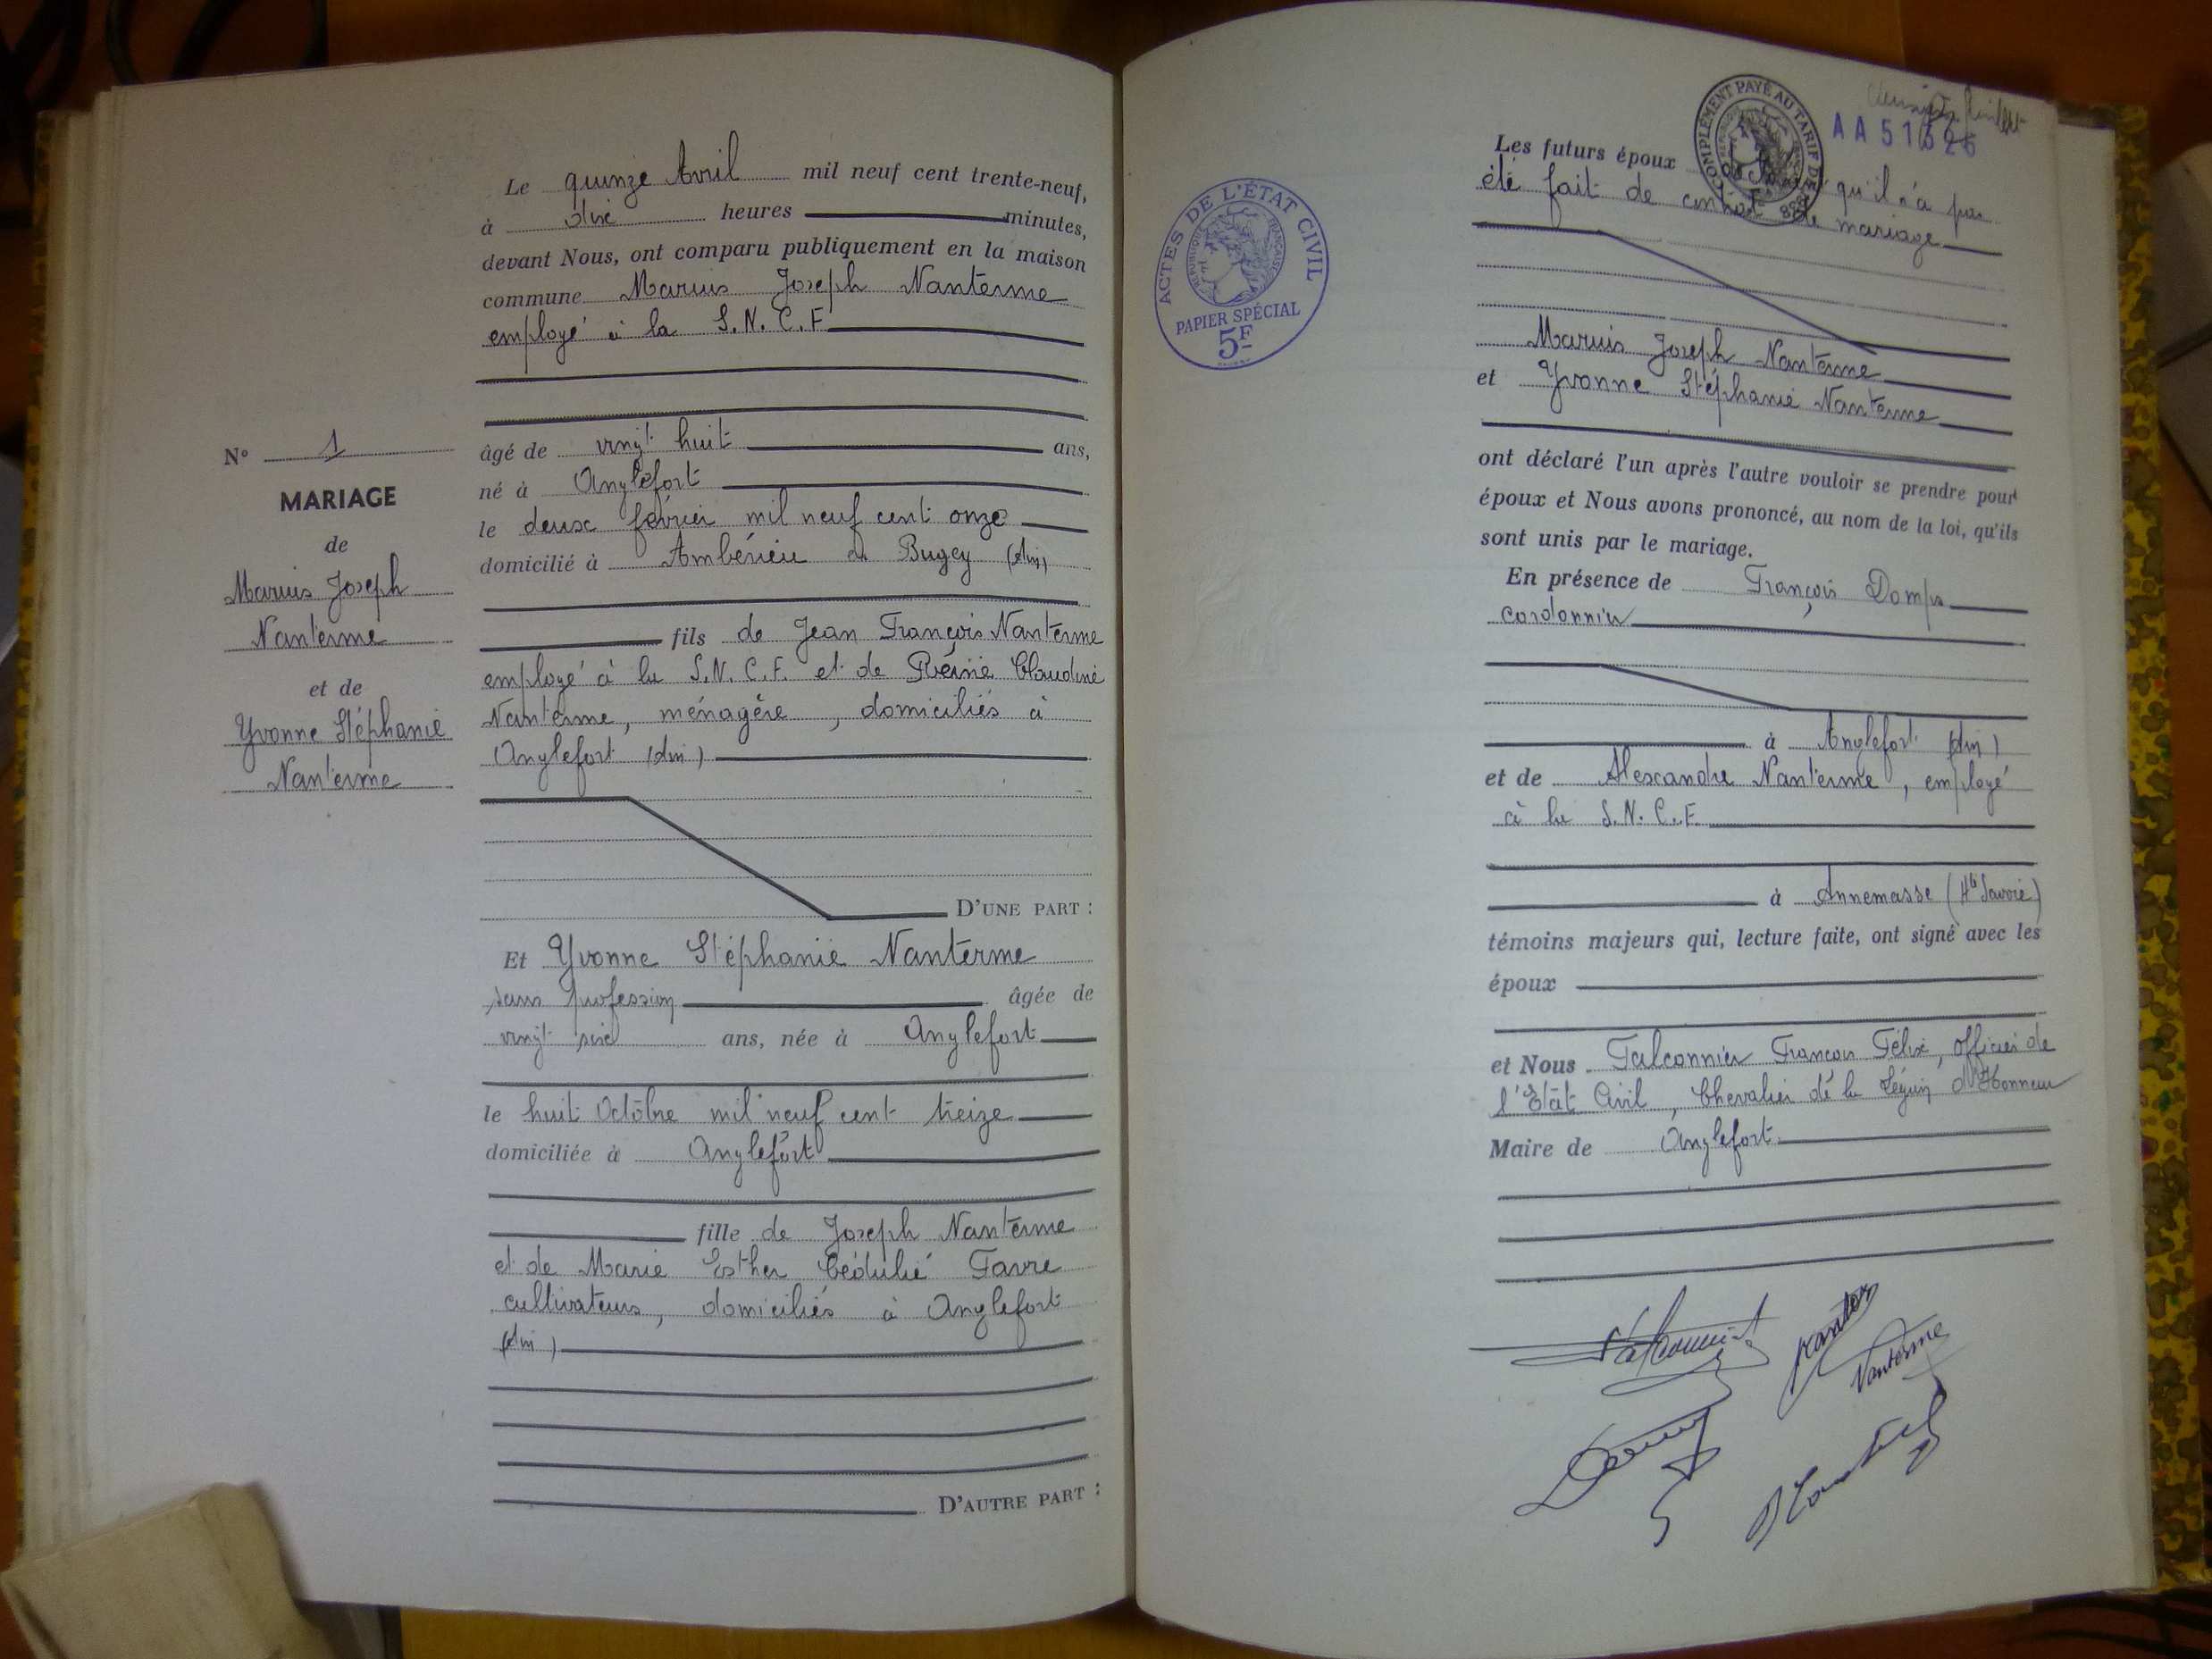 Le quinze Avril mil neuf cent trente-neuf,
à dix heures minutes,
devant Nous, ont comparu publiquement en la maison
commune Marius Joseph Nanterme
employé à la S.N.C.F
âgé de vingt huit ans,
né à Anglefort
le deux février mil neuf cent onze
domicilié à Ambérieu en Bugey (Ain)
fils de Jean François Nanterme
employé à la S.N.C.F. et de Reine Claudine
Nanterme, ménagère, domiciliés à
Anglefort (Ain)
D'UNE PART :
Et Yvonne Stéphanie Nanterme
sans profession âgée de
vingt six ans, née à Anglefort
le huit Octobre mil neuf cent treize
domiciliée à Anglefort
fille de Joseph Nanterme
et de Marie Esther Cédulie Favre
cultivateurs, domiciliés à Anglefort
(Ain)
D'AUTRE PART :
N° 1
MARIAGE
de
Marius Joseph
Nanterme
et de
Yvonne Stéphanie
Nanterme
ACTES DE L'ÉTAT CIVIL
RÉPUBLIQUE FRANÇAISE
PAPIER SPÉCIAL
5F
COMPLÉMENT PAYÉ AU TARIF DE
AA 51626
Les futurs époux qu'il n'a pas
été fait de contrat de mariage
Marius Joseph Nanterme
et Yvonne Stéphanie Nanterme
ont déclaré l'un après l'autre vouloir se prendre pour
époux et Nous avons prononcé, au nom de la loi, qu'ils
sont unis par le mariage.
En présence de François Domps
cordonnier
à Anglefort (Ain)
et de Alexandre Nanterme, employé
à la S.N.C.F.
à Annemasse (Hte Savoie)
témoins majeurs qui, lecture faite, ont signé avec les
époux
et Nous Falconnier François Félix, officier de
l'Etat Civil, Chevalier de la Légion d'Honneur
Maire de Anglefort
Nanterme